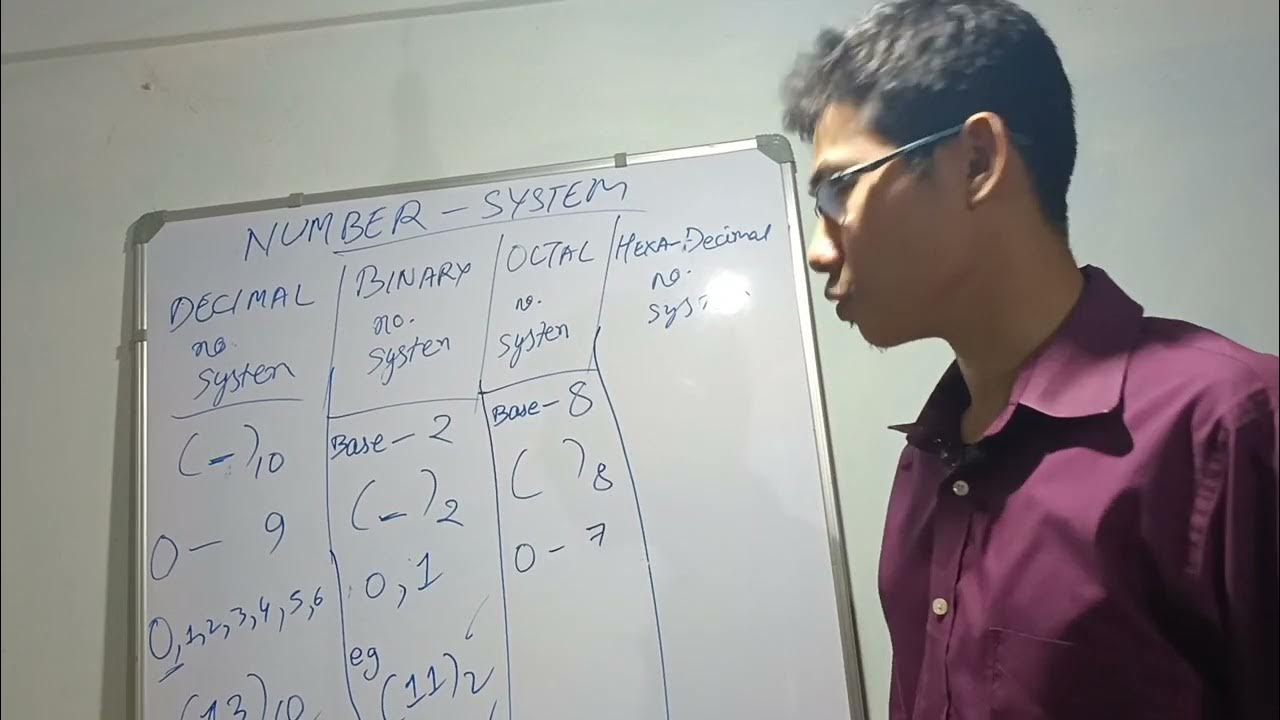 NUMBER - SYSTEM
DECIMAL
no.
system
(-)10
0 - 9
0,1,2,3,4,5,6
(13)10
BINARY
no.
system
Base - 2
(-)2
0,1
eg
(11)2
OCTAL
no.
system
Base - 8
( )8
0 - 7
HEXA-Decimal
no.